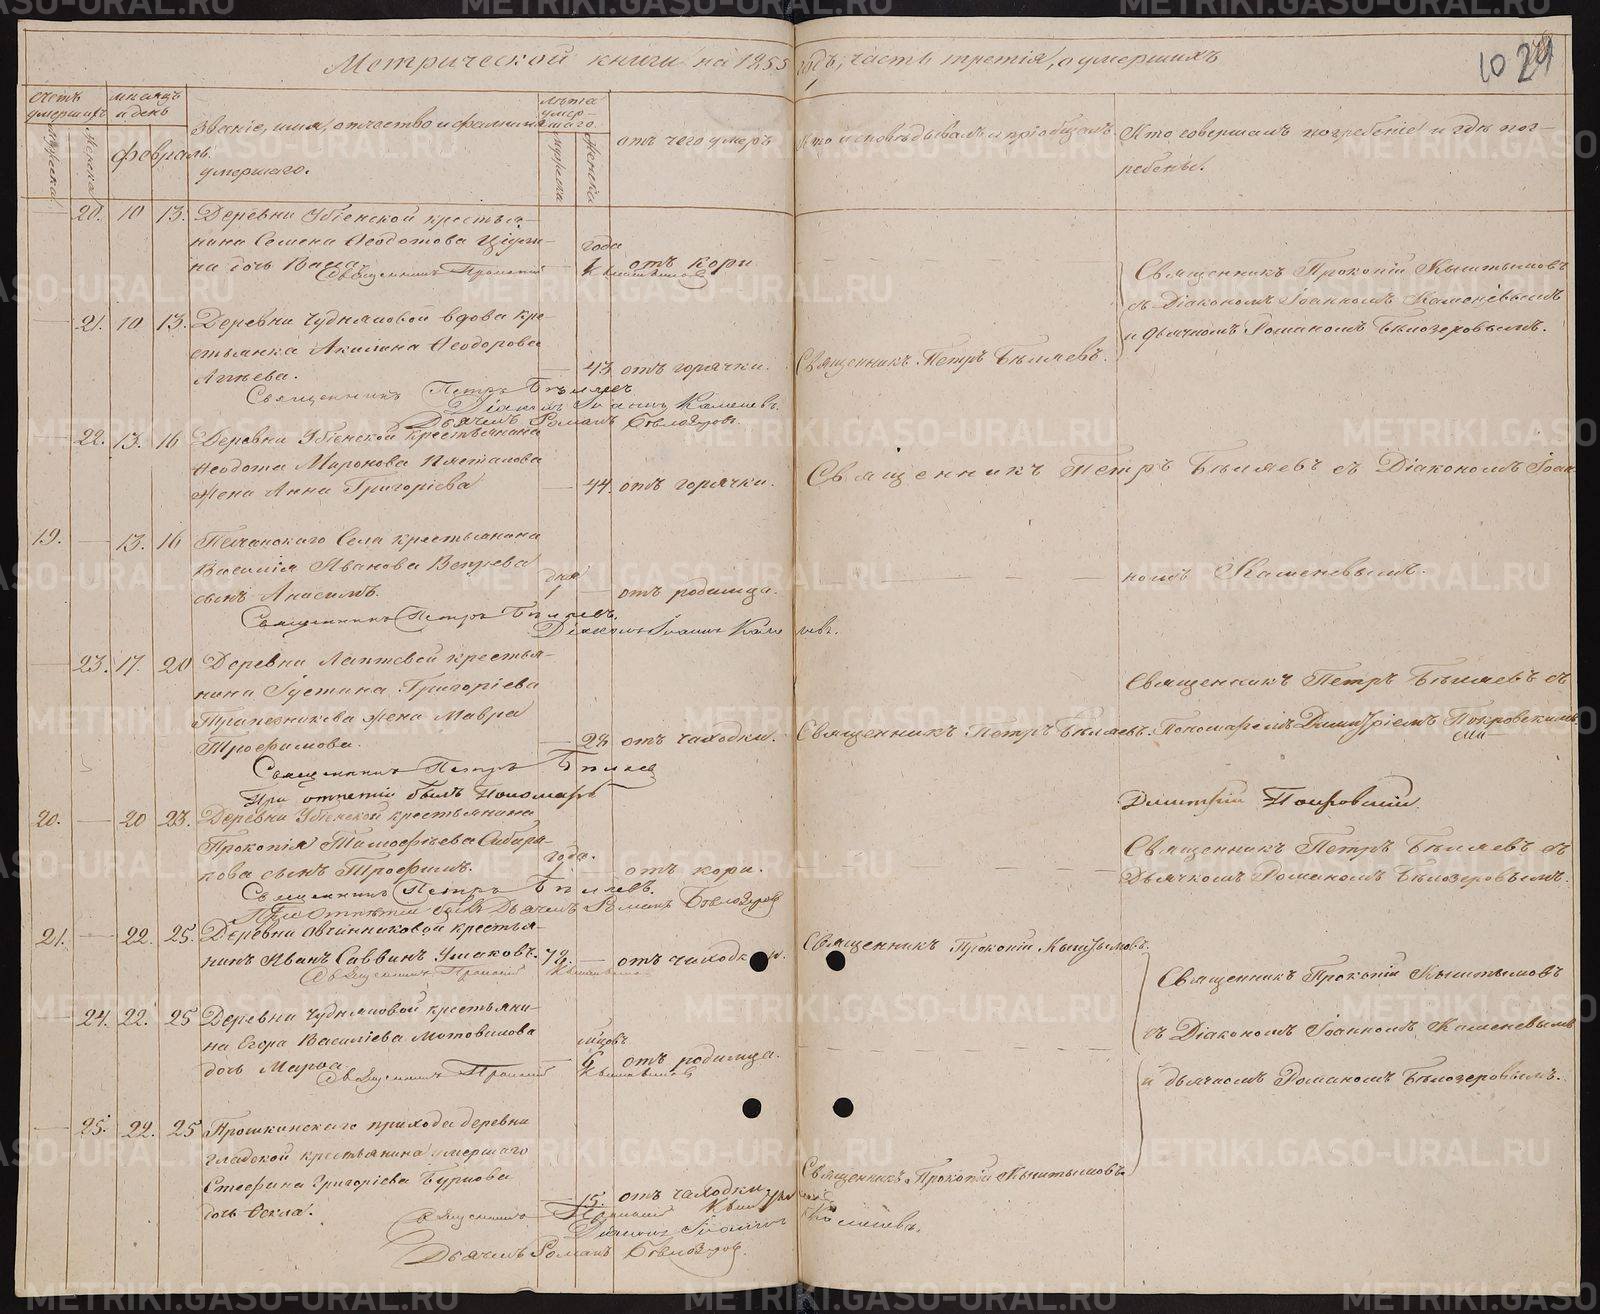 Метрической книги на 1855 годъ, часть третія, о умершихъ
10 29
счетъ умершихъ
мѣсяцъ и день
Званіе, имя, отчество и фамилія умершаго.
лѣта умершаго.
отъ чего умеръ
Кто исповѣдывалъ и пріобщалъ
Кто совершалъ погребеніе и гдѣ погребены.
Мужеска
Женска
февраль.
мужеска
женска
20. 10 13. Деревни Убіенской крестья-
нина Семена Ѳеодотова
на дочь Васса
года
1 отъ кори
Священникъ Прокопій Кыштымовъ
Священникъ Прокопій Кыштымовъ
съ Діакономъ Іоанномъ Каменевымъ
и дьячкомъ Романомъ Бѣлозеровымъ.
21. 10 13. Деревни Чудняковой вдова кре-
стьянка Акилина Ѳеодорова
43 отъ горячки. Священникъ Петръ Бѣляевъ.
Священникъ Петръ Бѣляевъ
Діаконъ Іоаннъ Каменевъ.
Дьячекъ Романъ Бѣлозеровъ.
22. 13. 16 Деревни Убіенской крестьянина
Ѳеодота Миронова
жена Анна Григоріева
44. отъ горячки. Священникъ Петръ Бѣляевъ съ Діакономъ Іоан-
19. 13. 16 Песчанскаго Села крестьянина
Василія Иванова Вепрева
сынъ Анисимъ.
дня
отъ родимца.
номъ Каменевымъ.
Священникъ Петръ Бѣляевъ.
Діаконъ Іоаннъ Каменевъ.
23. 17. 20 Деревни Лаптевой крестья-
нина Густина Григоріева
жена Мавра
Трофимова.
28 отъ чахотки. Священникъ Петръ Бѣляевъ.
Священникъ Петръ Бѣляевъ съ
Пономаремъ Димитріемъ Покровскимъ
Священникъ Петръ Бѣляев
При отпетіи былъ Пономарь
Димитрій Покровскій.
20. 20 23. Деревни Убіенской крестьянина
Прокопія Тимофѣева Сибиря-
кова сынъ Трофимъ.
года.
отъ кори.
Священникъ Петръ Бѣляевъ съ
Дьячкомъ Романомъ Бѣлозеровымъ.
Священникъ Петръ Бѣляевъ.
При отпѣтіи былъ Дьячекъ Романъ Бѣлозеровъ
21. 22. 25. Деревни Овчинниковой крестья-
нинъ Иванъ Саввинъ Ушаковъ. 78. отъ чахотки.
Священникъ Прокопій Кыштымовъ.
Священникъ Прокопій Кыштымовъ
Священникъ Прокопій Кыштымовъ
съ Діакономъ Іоанномъ Каменевымъ
и дьячкомъ Романомъ Бѣлозеровымъ.
24. 22. 25 Деревни Чудняковой крестьяни-
на Егора Василіева Мотовилова
дочь Марѳа
мѣсяцовъ
6 отъ родимца.
Священникъ Прокопій Кыштымовъ
25. 22. 25 Прошкинскаго прихода деревни
Гладской крестьянина умершаго
Стефана Григоріева Буркова
дочь Ѳекла.
15. отъ чахотки
Священникъ Прокопій Кыштымовъ.
Священникъ Прокопій Кыштымовъ
Діаконъ Іоаннъ Каменевъ.
Дьячекъ Романъ Бѣлозеровъ.
METRIKI.GASO-URAL.RU